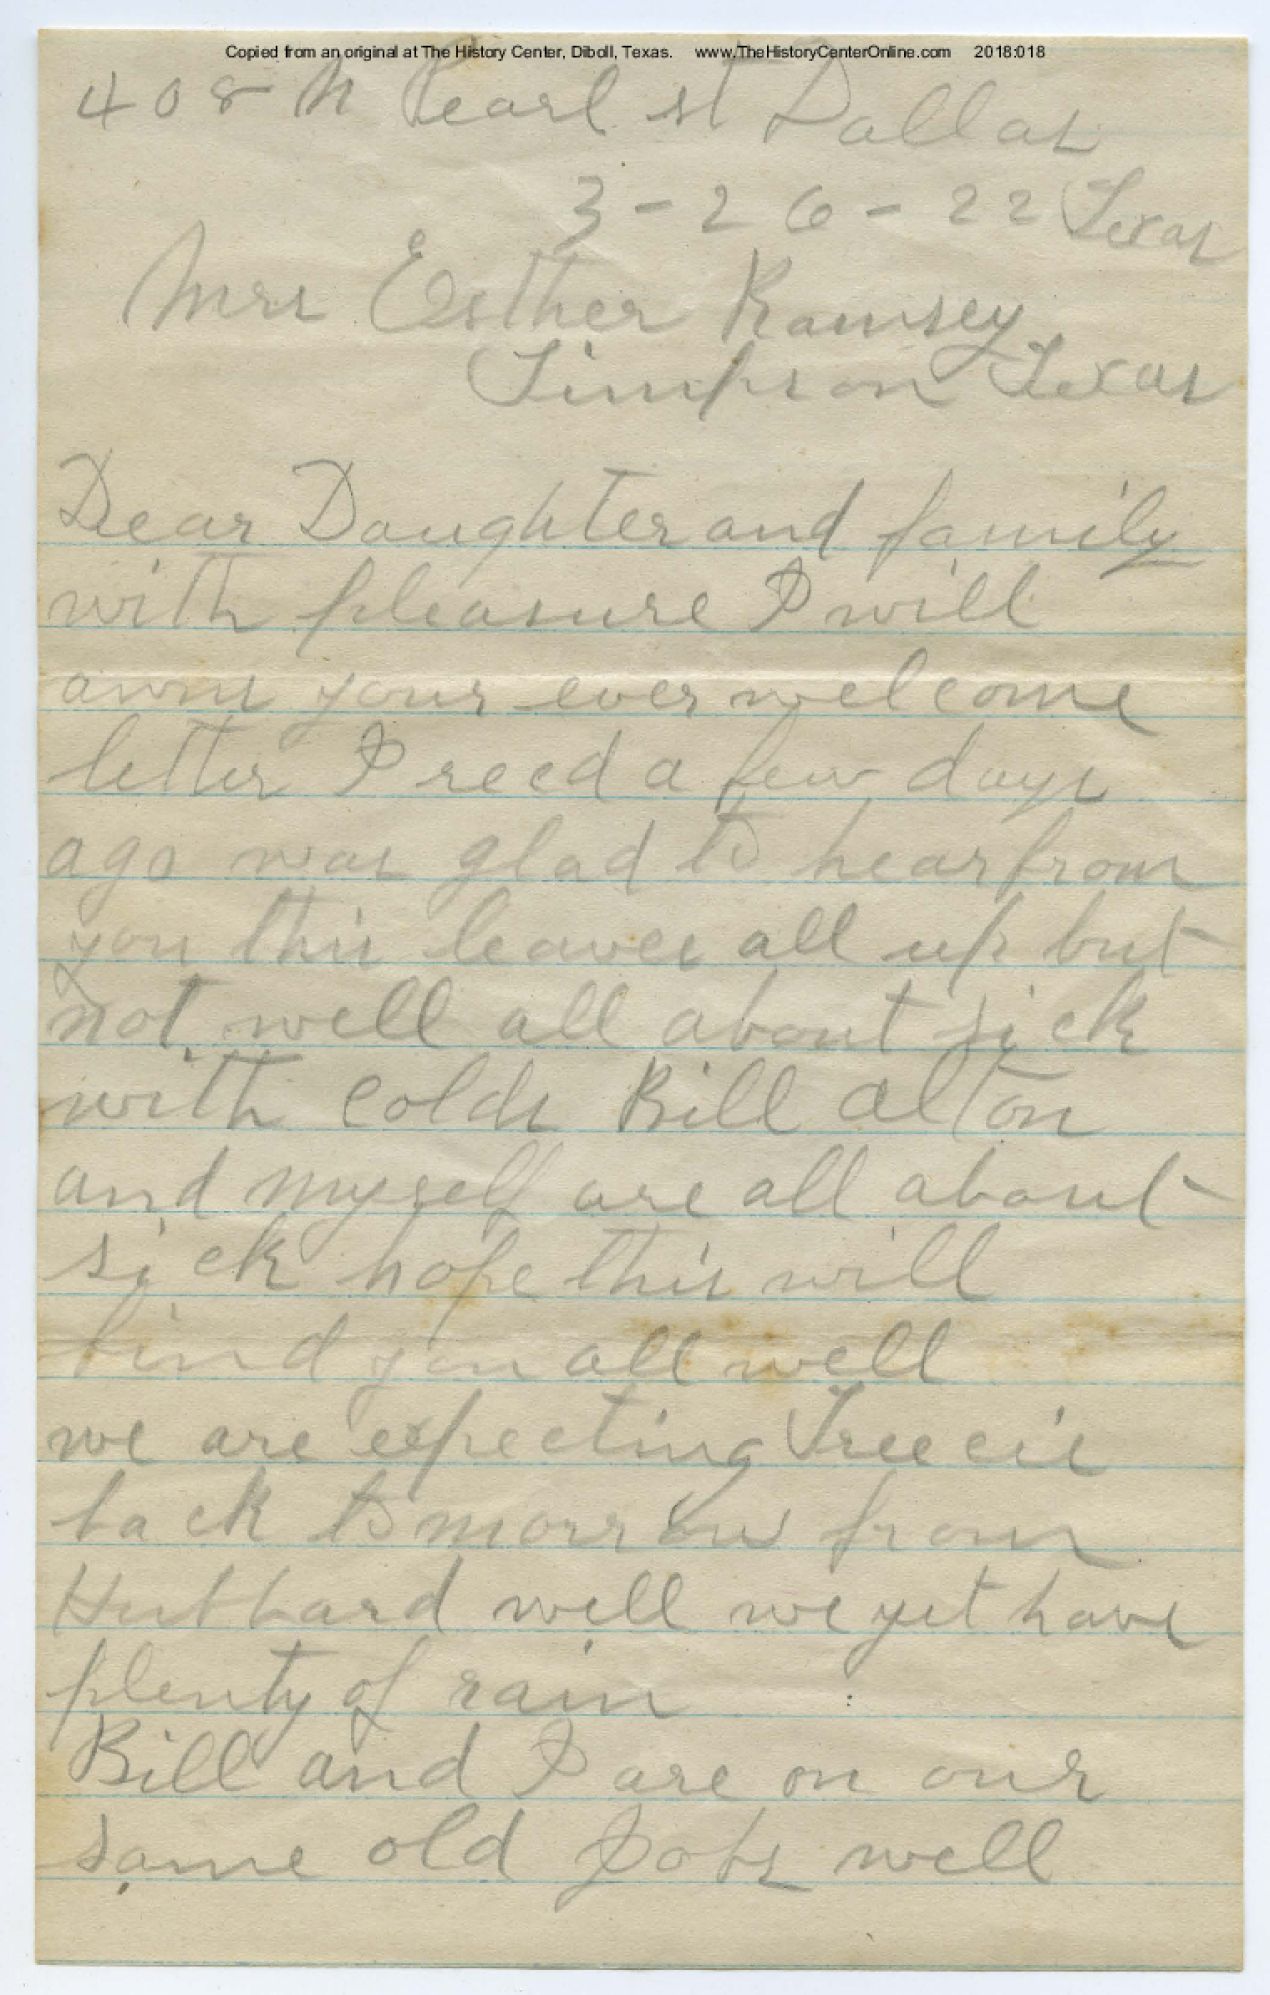 Copied from an original at The History Center, Diboll, Texas. www.TheHistoryCenterOnline.com 2018:018
408 N Pearl st Dallas
3-26-22 Texas
Mrs Esther Ramsey
Timpson Texas
Dear Daughter and family
with pleasure I will
answ your ever welcome
letter I recd a few days
ago was glad to hear from
you this leaves all up but
not well all about sick
with colds Bill Alton
and myself are all about
sick hope this will
find you all well
we are expecting Treecie
back tomorrow from
Hubbard well we yet have
plenty of rain
Bill and I are on our
same old Jobs well